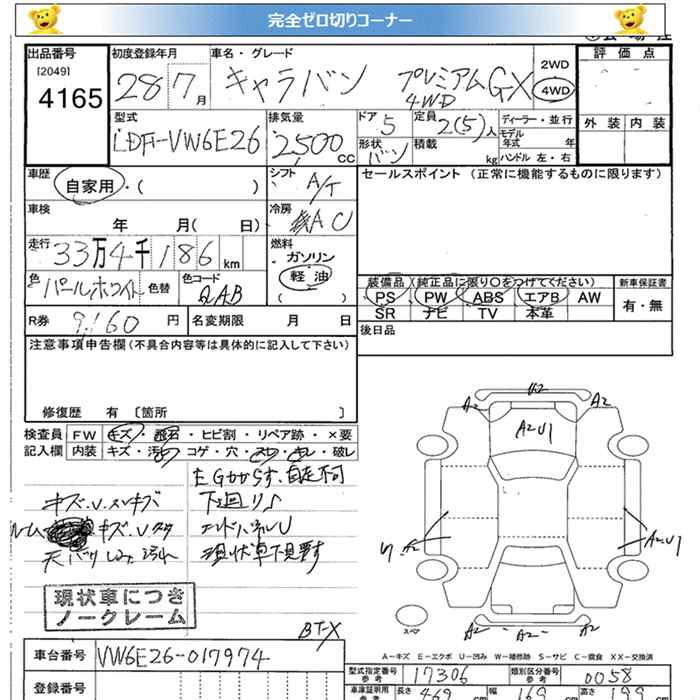 完全ゼロ切りコーナー
出品番号 初度登録年月 車名・グレード 評価点
[2049]
4165 28 7月 キャラバン プレミアムGX 4WD 2WD 4WD
型式 排気量 ドア 定員 ディーラー・並行 外装 内装
LDF-VW6E26 2500cc 5 2(5)人 モデル年式 年
形状 バン 積載 kg ハンドル 左・右
車歴 自家用・( ) シフト A/T セールスポイント (正常に機能するものに限ります)
車検 年 月( 日) 冷房 AC
走行 33万4千186km 燃料 ガソリン 軽油 ( )
色 パールホワイト 色替 色コード QAB
装備品 (純正品に限り○をつけてください) 新車保証書
PS PW ABS エアB AW 有・無
SR ナビ TV 本革
R券 9,160円 名変期限 月 日 後日品
注意事項申告欄(不具合内容等は具体的に記入して下さい)
修復歴 有 〔箇所 〕
検査員 FW キズ・飛石・ヒビ割・リペア跡・×要
記入欄 内装 キズ・汚れ・コゲ・穴・スレ・キレ・破レ
EGかからず、自走不可
キズ.V.スレキズ 下廻りサ
ルーム キズ.V エンドパネルU
現状車下見要す
現状車につき
ノークレーム
BT-X
U2
A2 A2
A2U1
A2 A2U1
スペア A2 A2 A2
A-キズ E-エクボ U-凹み W-補修跡 S-サビ C-腐食 XX-交換済
車台番号 VW6E26-017974
型式指定番号 参考 17306 類別区分番号 参考 0058
登録番号
車庫証明用 参考 長さ 469cm 幅 169cm 高さ 199cm